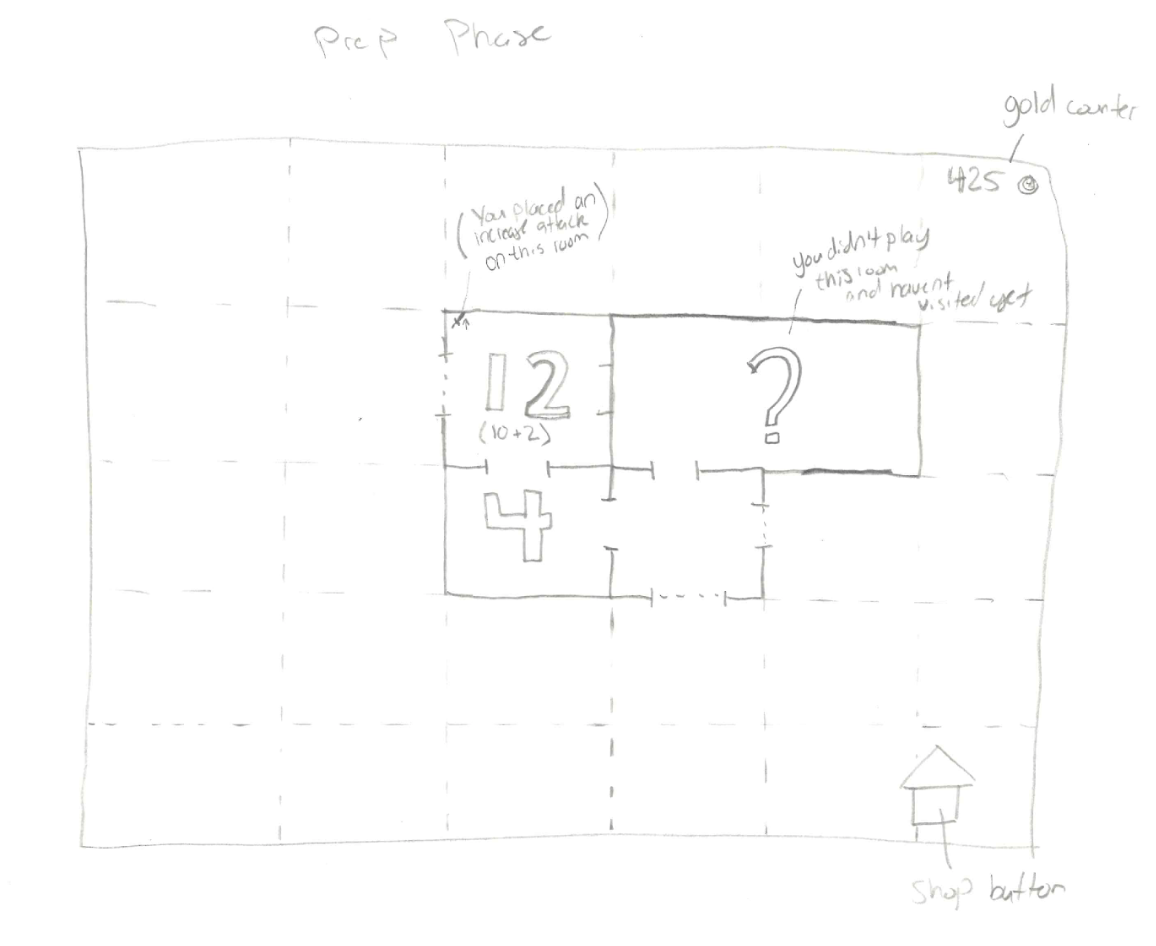 Prep Phase
gold counter
425
(You placed an
increase attack
on this room)
you didn't play
this room
and havent
visited yet
12
?
(10+2)
4
shop button